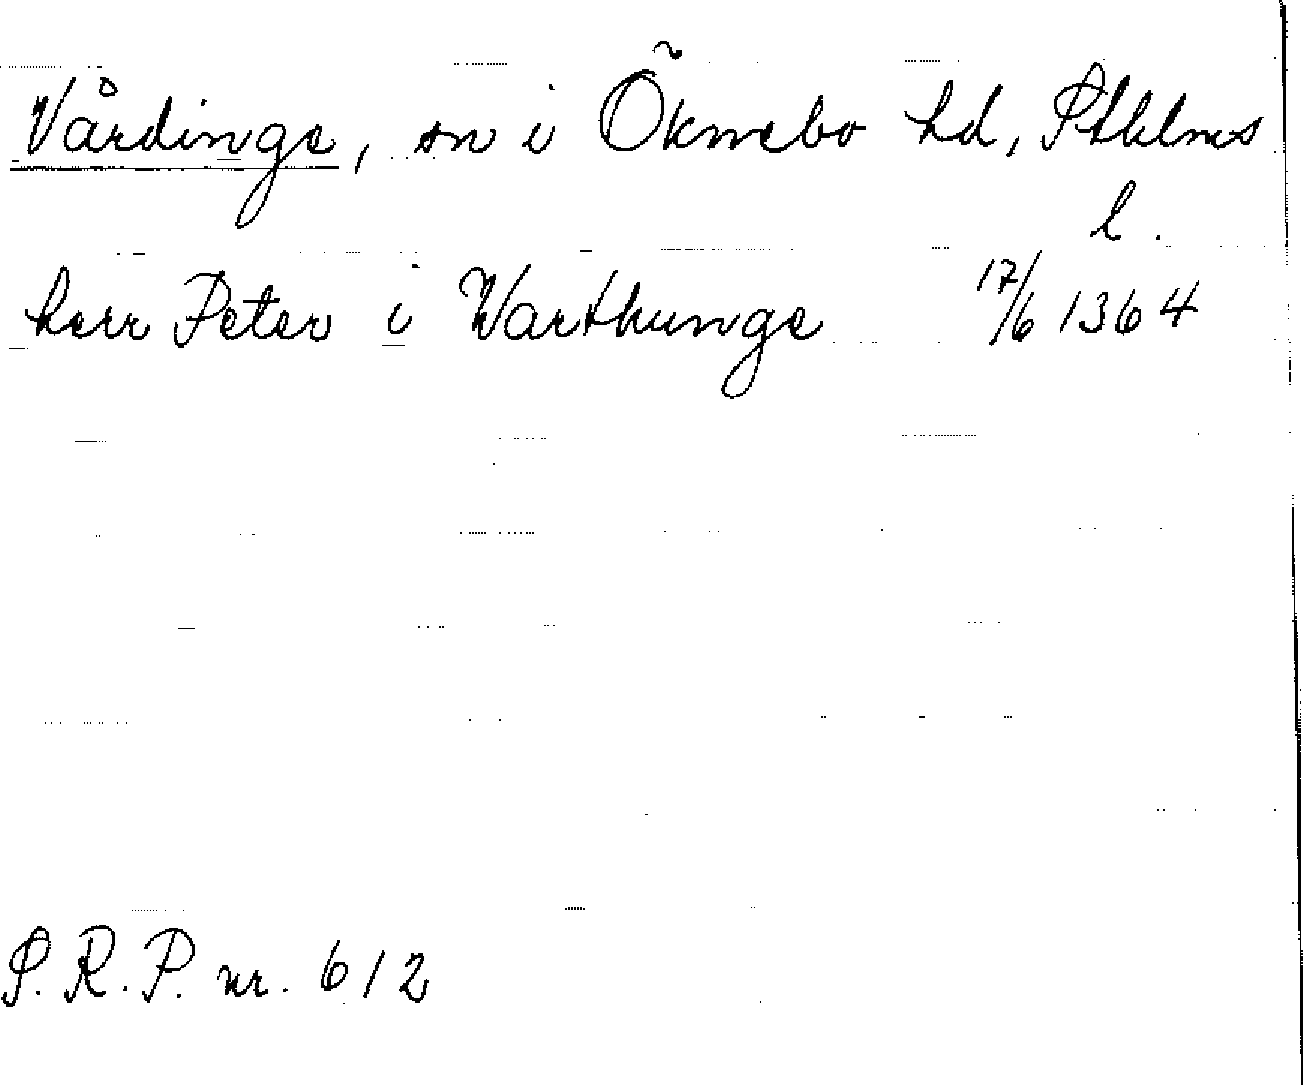 Vårdinge, sn i Öknebo hd, Sthlms
l.
herr Peter i Warthunge 17/6 1364
S.R.P. nr. 612